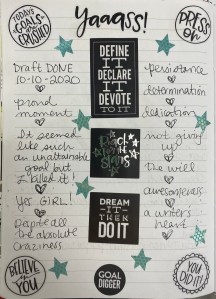 TODAY'S
GOALS
CRUSHED
Yaaass!
PRESS
on
DEFINE
IT
DECLARE
IT
DEVOTE
TO IT
Draft DONE
10-10-2020
proud
moment
It seemed
like such
an unattainable
goal but
I killed it!
Yes GIRL!
Dispite all
the absolute
craziness
Reach
the
Stars
DREAM
IT
THEN
DO IT
persistance
determination
dedication
not giving
up
the will
awesomeness
a writers
heart
BELIEVE
IN
YOU
GOAL
DIGGER
YOU
DID IT!